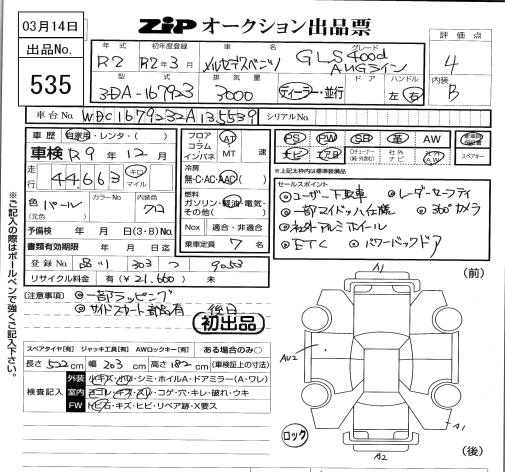 03月14日
ZIP オークション出品票
出品No.
535
評価点
4
内装
B
年式 初年度登録 車名 グレード
R2 R2年3月 メルセデスベンツ GLS400d AMGライン
型式 排気量 ドア ハンドル
3DA-167923 3000 ディーラー・並行 左・右
車台No. WDC1679232A135539 シリアルNo.
車歴 自家用・レンタ・( )
車検 R9年12月
走行 44,663 キロ マイル
色 パール カラーNo. 内装色 クロ
(元色)
予備検 年 月 日(3・8)No.
書類有効期限 年 月 日迄
登録No. 品川 303 つ 9053
リサイクル料金 有(¥21,660) 未
フロア コラム インパネ AT MT 速
冷房 無・C・AC・AAC( )
燃料 ガソリン・軽油・電気・その他( )
Nox 適合・非適合
乗車定員 7 名
PS PW SR 革 AW 新車時保証書
ナビ エアB Dチューナー(純・外含む) 社外ナビ 社外AW スペアキー
※上記太枠は標準装備品
セールスポイント
◎ユーザー下取車 ◎レーダーセーフティ
◎一部マイバッハ仕様 ◎360°カメラ
◎社外アルミホイール
◎ETC ◎パワーバックドア
[注意事項] ◎一部ラッピング
◎サイドスカート部品有 後日
初出品
スペアタイヤ[有] ジャッキ工具[有] AWロックキー[有] ある場合のみ○
長さ 522 cm 幅 203 cm 高さ 182 cm (車検証上の寸法)
検査記入
外装 小キズ・小凹・シミ・ホイルA・ドアミラー(A・ワレ)
室内 ヨゴレ・キズ・スレ・コゲ・穴・キレ・破れ・ウキ
FW トビ石・キズ・ヒビ・リペア跡・X要ス
※ご記入の際はボールペンで強くご記入下さい。
A1
(前)
AU2
ロック
A1
A2
(後)